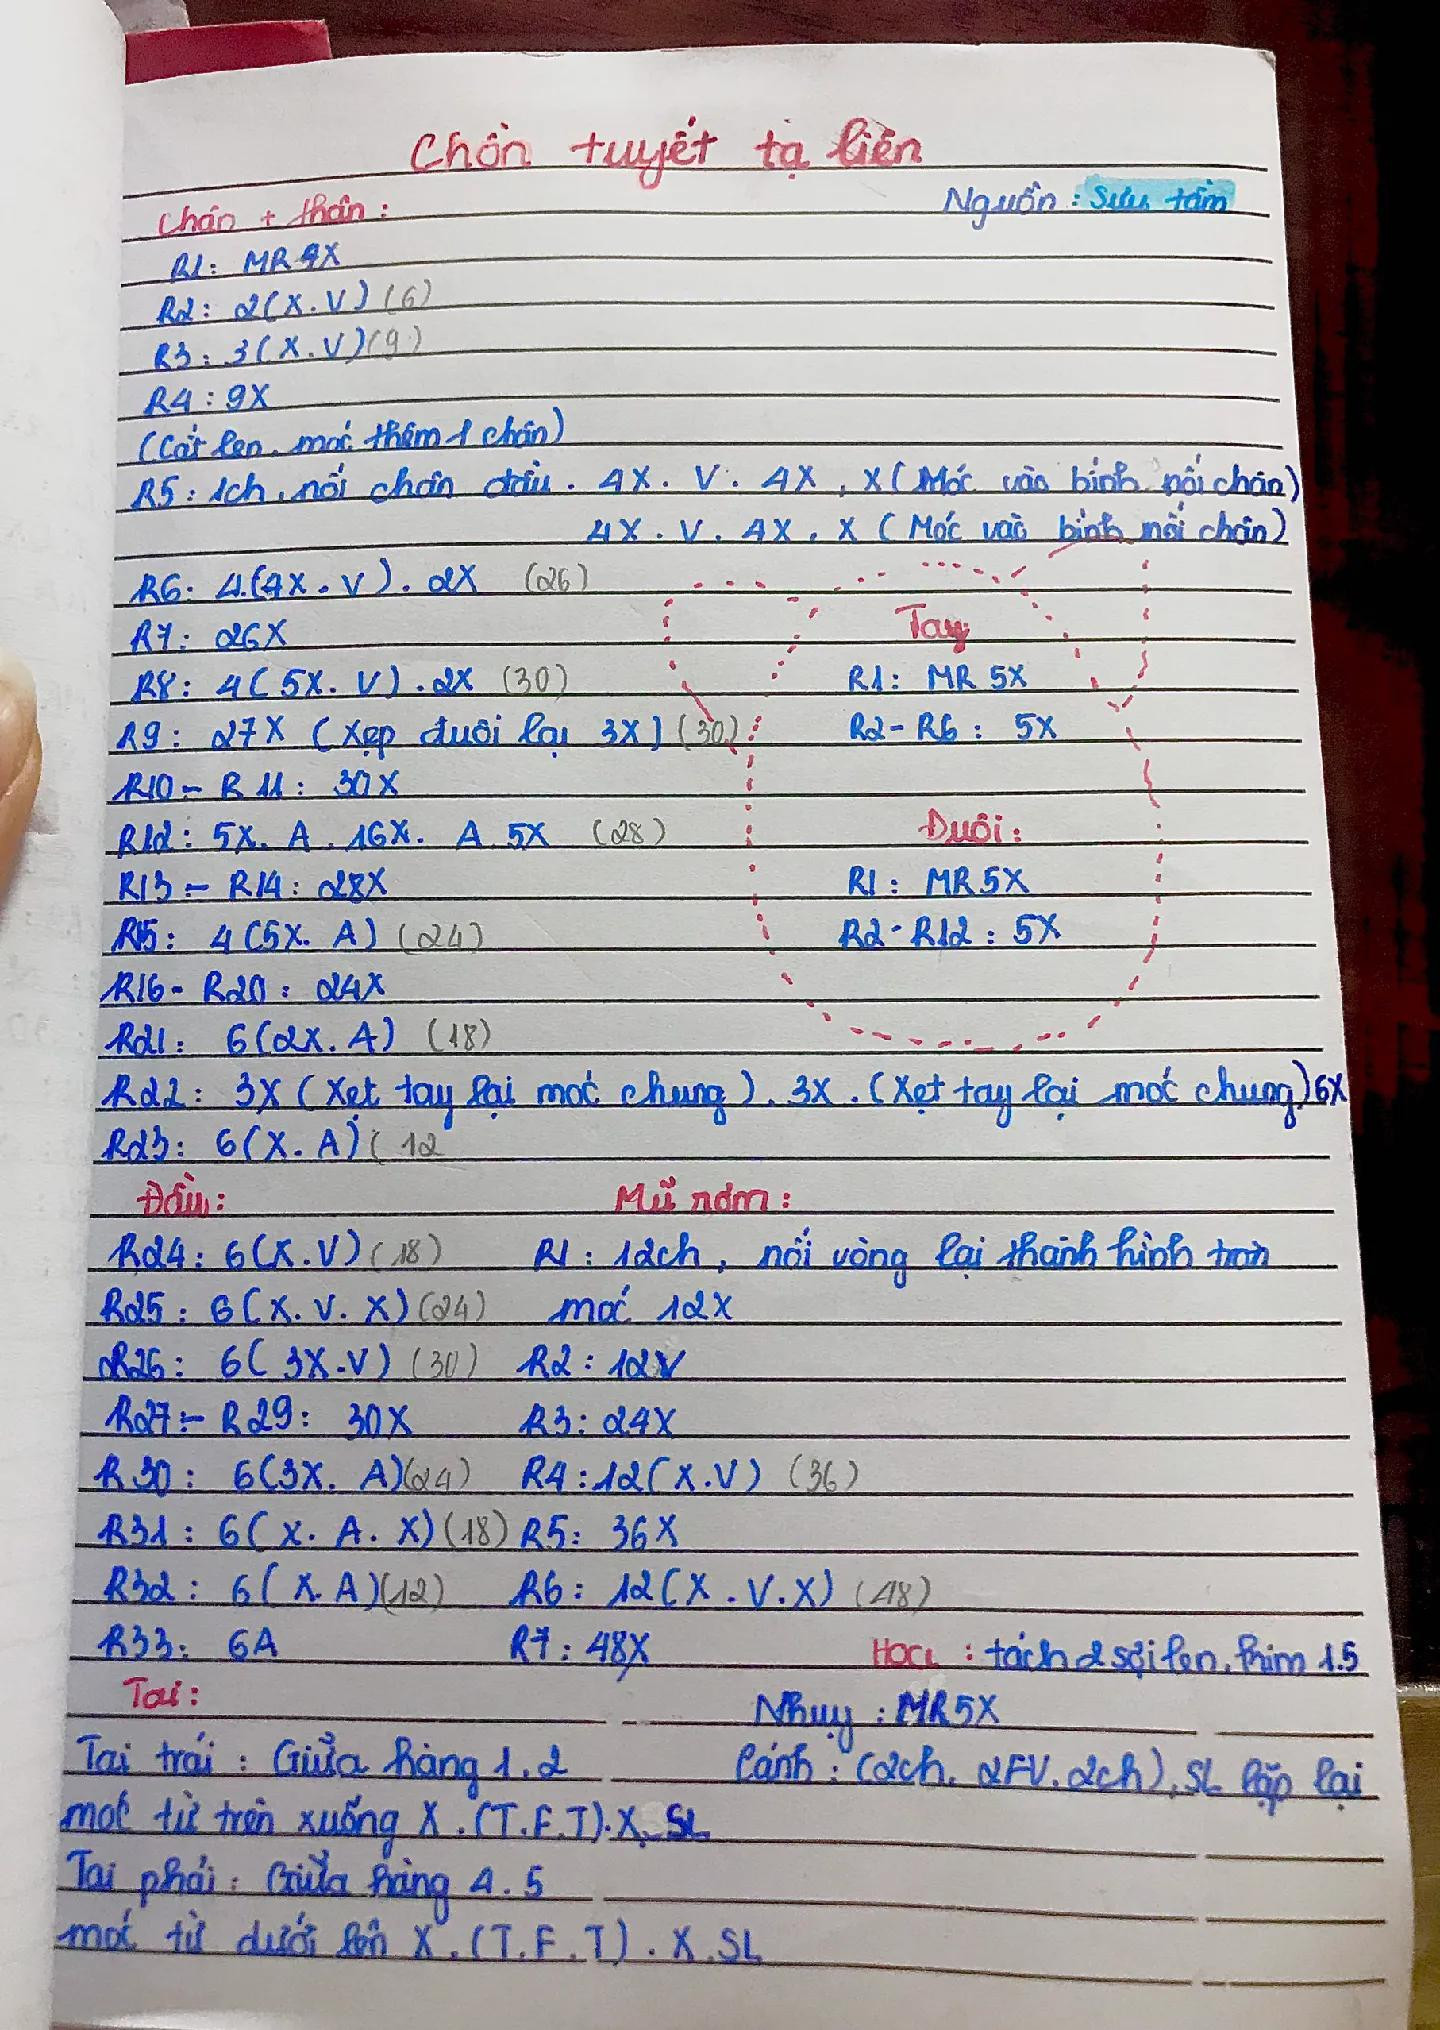 Chồn tuyết tạ liên
Nguồn: Sưu tầm
Chân + thân:
R1: MR 4X
R2: 2(X.V) (6)
R3: 3(X.V)(9)
R4: 9X
(Cắt len, móc thêm 1 chân)
R5: 1ch, nối chân đầu. 4X. V. 4X, X (Móc vào bính nối chân)
4X. V. 4X, X (Móc vào bính nối chân)
R6: 4(4X.V). 2X (26)
R7: 26X
R8: 4(5X.V).2X (30)
R9: 27X (Xẹp đuôi lại 3X) (30)
R10 - R11: 30X
R12: 5X. A. 16X. A. 5X (28)
R13 - R14: 28X
R15: 4(5X. A) (24)
R16 - R20: 24X
R21: 6(2X. A) (18)
R22: 3X (Xẹt tay lại móc chung). 3X. (Xẹt tay lại móc chung) 6X
R23: 6(X. A) (12
Tay
R1: MR 5X
R2 - R6: 5X
Đuôi:
R1: MR 5X
R2 - R12: 5X
Đầu:
R24: 6(X.V) (18)
R25: 6(X.V.X) (24)
R26: 6(3X.V) (30)
R27 - R29: 30X
R30: 6(3X. A)(24)
R31: 6(X. A. X)(18)
R32: 6(X. A)(12)
R33: 6A
Mũ rơm:
R1: 12ch, nối vòng lại thành hình tròn
móc 12X
R2: 12V
R3: 24X
R4: 12(X.V) (36)
R5: 36X
R6: 12(X.V.X) (48)
R7: 48X
Hoa: tách 2 sợi len, kim 1.5
Nhuỵ: MR5X
Cánh: (2ch. 2FV. 2ch), SL lặp lại
Tai:
Tai trái: Giữa hàng 1,2
móc từ trên xuống X.(T.F.T).X.SL
Tai phải: Giữa hàng 4.5
móc từ dưới lên X.(T.F.T).X.SL